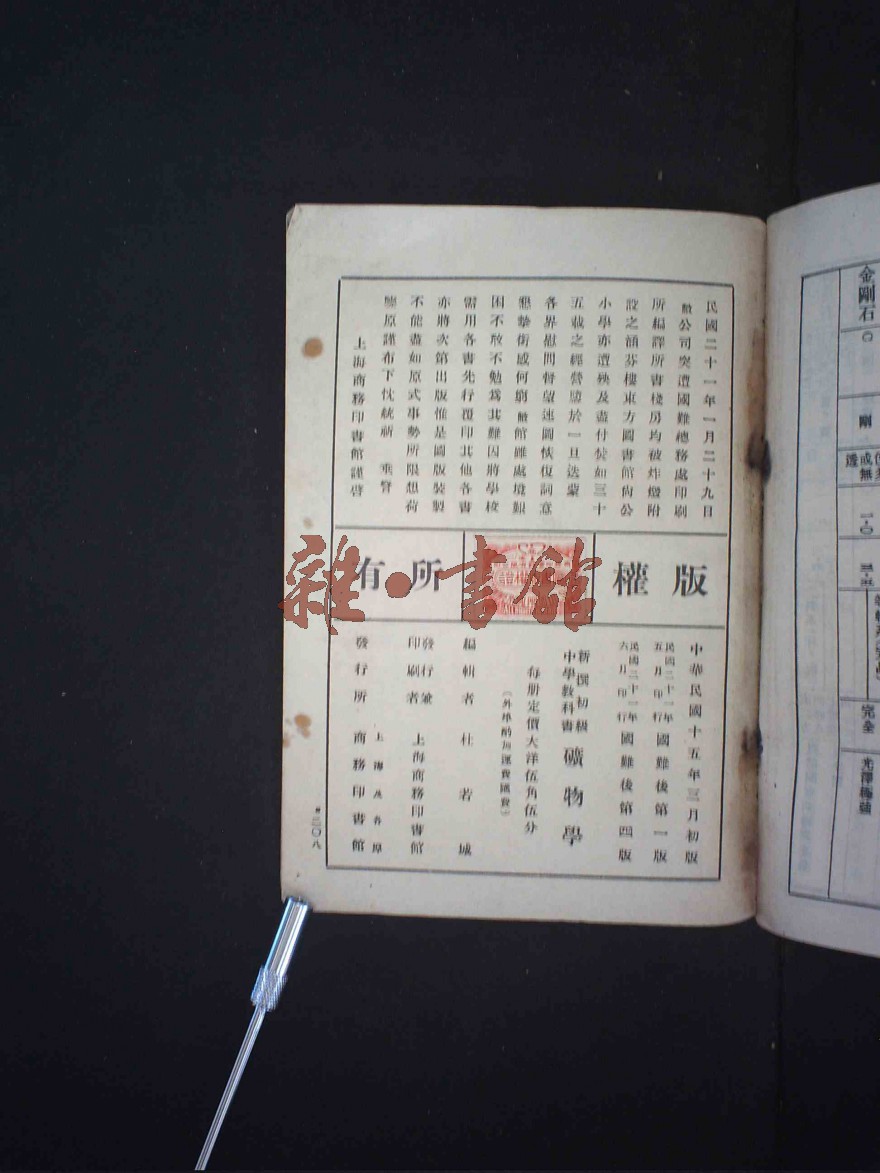 民國二十一年一月二十九日
敝公司突遭國難總務處印刷
所編譯所書棧房均被炸燬附
設之涵芬樓東方圖書館尚公
小學亦遭殃及盡付焚如三十
五載之經營隳於一旦迭蒙
各界慰問督望速圖恢復詞意
懇摯銜感何窮敝館雖處境艱
困不敢不勉爲其難因將學校
需用各書先行覆印其他各書
亦將次第出版惟是圖版裝製
不能盡如原式事勢所限想荷
鑒原謹布下忱統祈 垂詧
上海商務印書館謹啓
版權所有
中華民國十五年三月初版
民國二十一年五月印行國難後第一版
民國二十一年六月印行國難後第四版
新撰初級中學教科書 礦物學
每册定價大洋伍角伍分
(外埠酌加運費匯費)
編輯者 杜若城
發行兼印刷者 上海商務印書館
發行所 上海及各埠 商務印書館
二〇八
雜·書館
金剛石
C
剛
透或無
完全
光澤極強